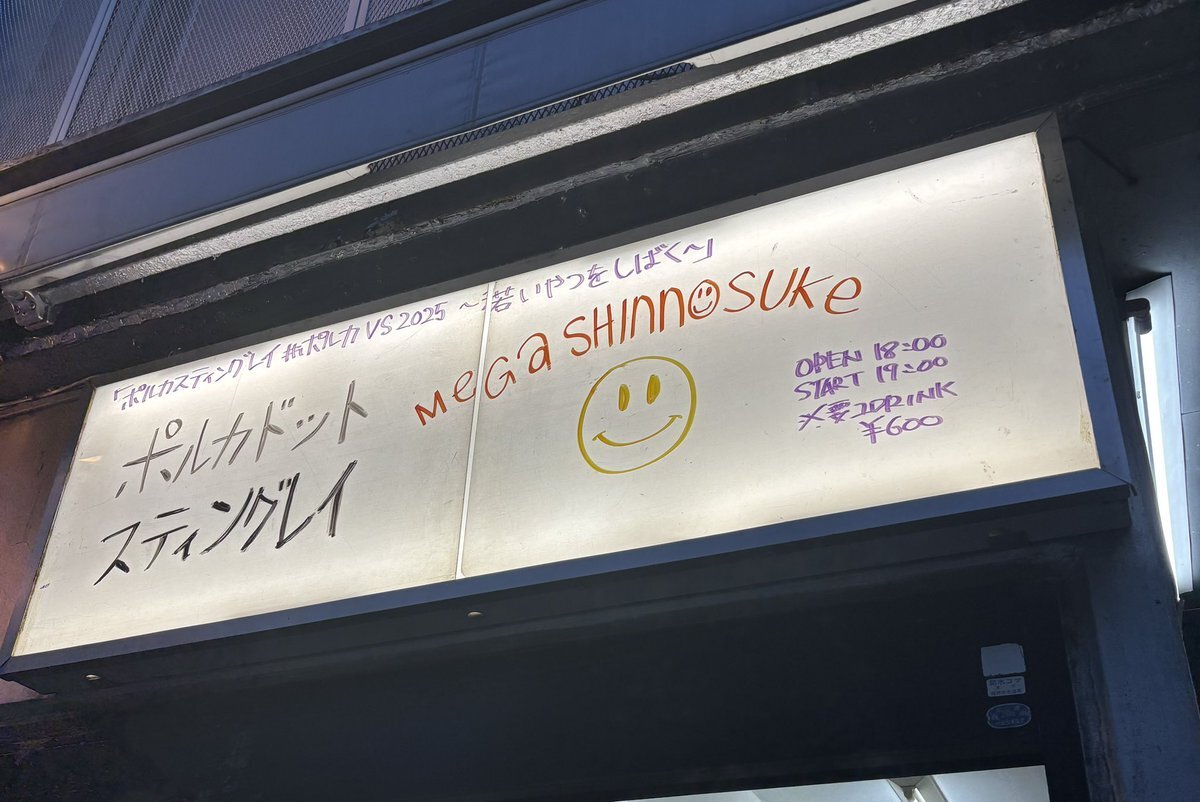 「ポルカスティングレイ #ポルカVS2025 〜若いやつをしばく〜」
ポルカドット
スティングレイ
MEGA SHINNOSUKE
OPEN 18:00
START 19:00
※要2DRINK
¥600